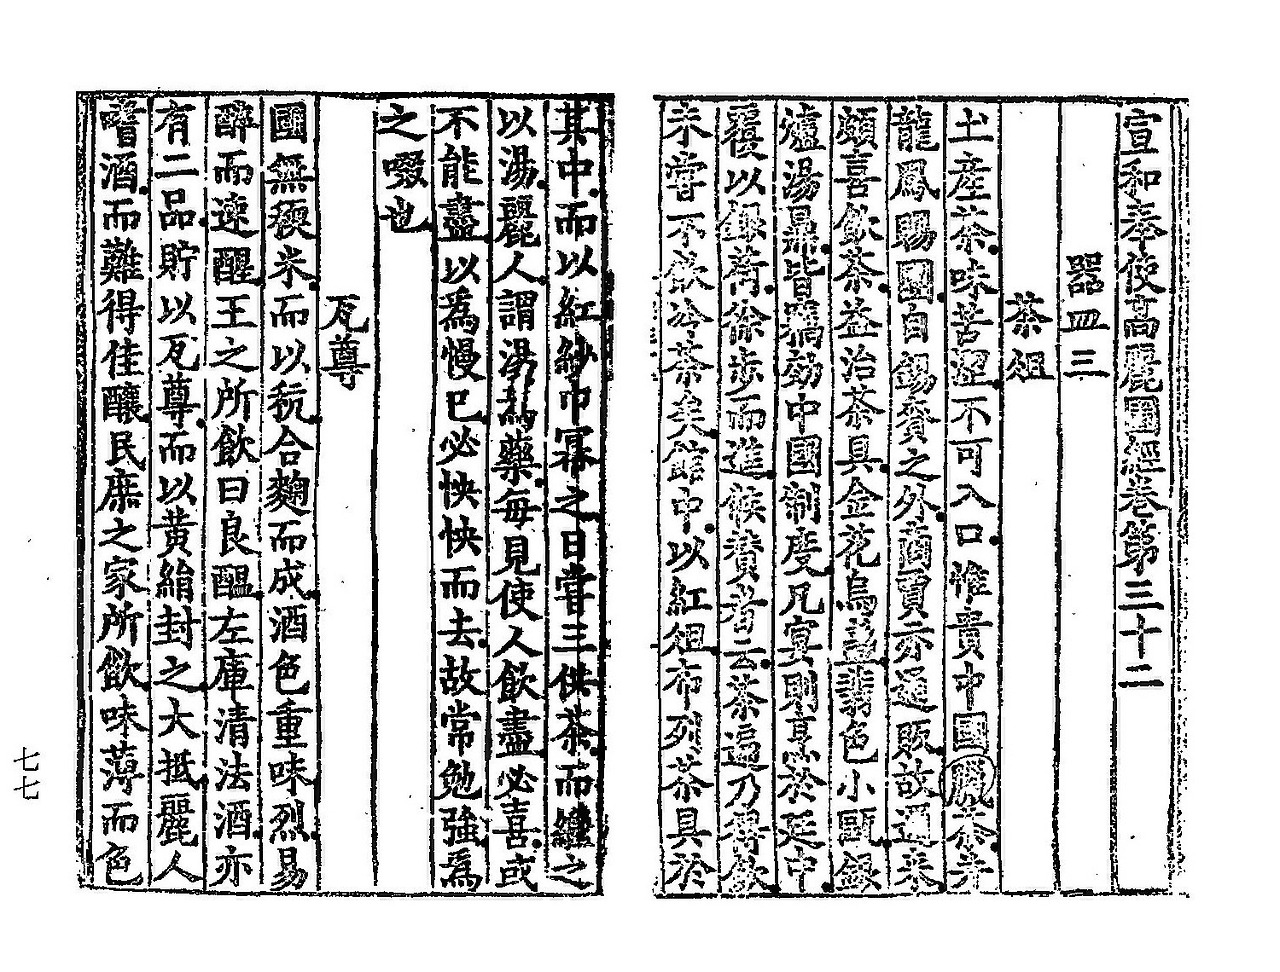 宣和奉使高麗圖經卷第三十二
器皿三
茶俎
土產茶味苦澀不可入口惟貴中國臘茶并
龍鳳賜團自錫賚之外商賈亦通販故邇來
頗喜飲茶益治茶具金花烏盞翡色小甌銀
爐湯鼎皆竊效中國制度凡宴則烹於廷中
覆以銀荷徐步而進候贊者云茶遍乃得飲
未嘗不飲冷茶矣館中以紅俎布列茶具於
其中而以紅紗巾冪之日嘗三供茶而繼之
以湯麗人謂湯為藥每見使人飲盡必喜或
不能盡以為慢己必怏怏而去故常勉強為
之啜也
瓦尊
國無稬米而以秔合麴而成酒色重味烈易
醉而速醒王之所飲曰良醞左庫清法酒亦
有二品貯以瓦尊而以黃絹封之大抵麗人
嗜酒而難得佳釀民庶之家所飲味薄而色
七七